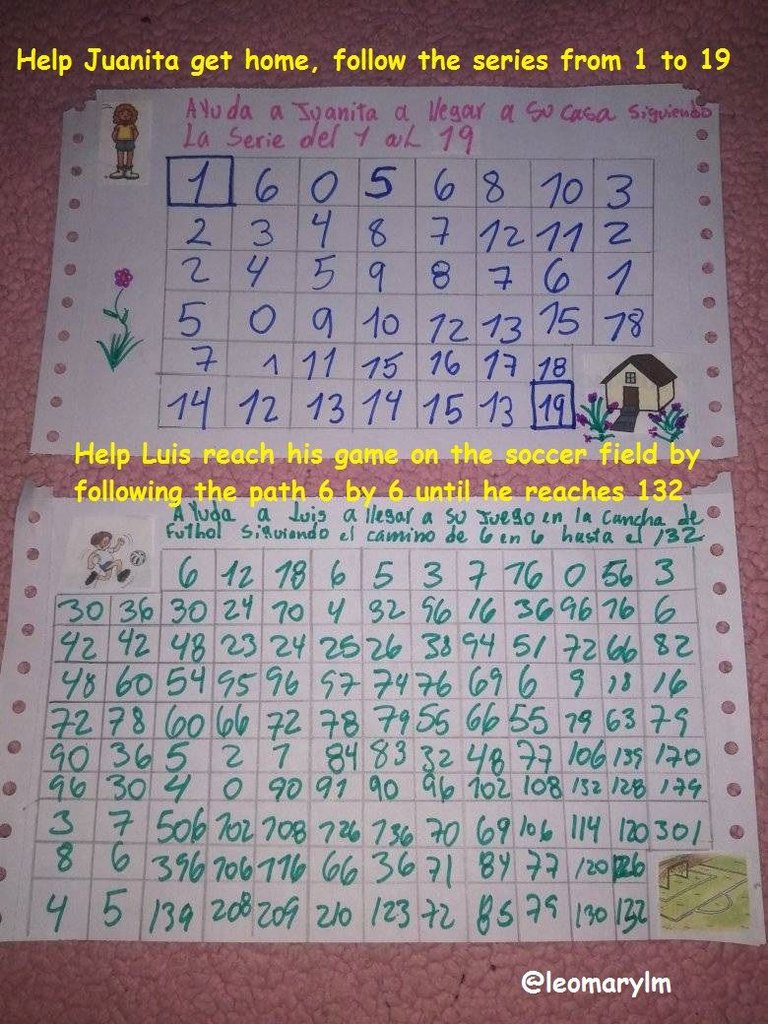 Help Juanita get home, follow the series from 1 to 19
Ayuda a Juanita a llegar a su casa siguiendo
La Serie del 1 al 19
1 6 0 5 6 8 10 3
2 3 4 8 7 12 11 2
2 4 5 9 8 7 6 1
5 0 9 10 12 13 15 18
7 1 11 15 16 17 18
14 12 13 14 15 13 19
Help Luis reach his game on the soccer field by
following the path 6 by 6 until he reaches 132
Ayuda a Luis a llegar a su Juego en la Cancha de
Futbol Siguiendo el camino de 6 en 6 hasta el 132
6 12 18 6 5 3 7 76 0 56 3
30 36 30 24 70 4 32 96 16 36 96 76 6
42 42 48 23 24 25 26 38 94 51 72 66 82
48 60 54 95 96 97 74 76 69 6 9 18 16
72 78 60 66 72 78 79 55 66 55 79 63 79
90 36 5 2 1 84 83 32 48 77 106 139 170
96 30 4 0 90 91 90 96 102 108 132 128 179
3 7 506 702 708 726 736 70 69 106 114 120 301
8 6 396 706 776 66 36 71 84 77 120 126
4 5 139 208 209 210 123 72 85 79 130 132
@leomarylm